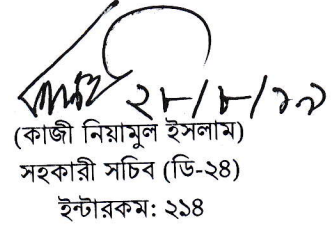 ২৮/৮/১৯
(কাজী নিয়ামুল ইসলাম)
সহকারী সচিব (ডি-২৪)
ইন্টারকম: ২১৪